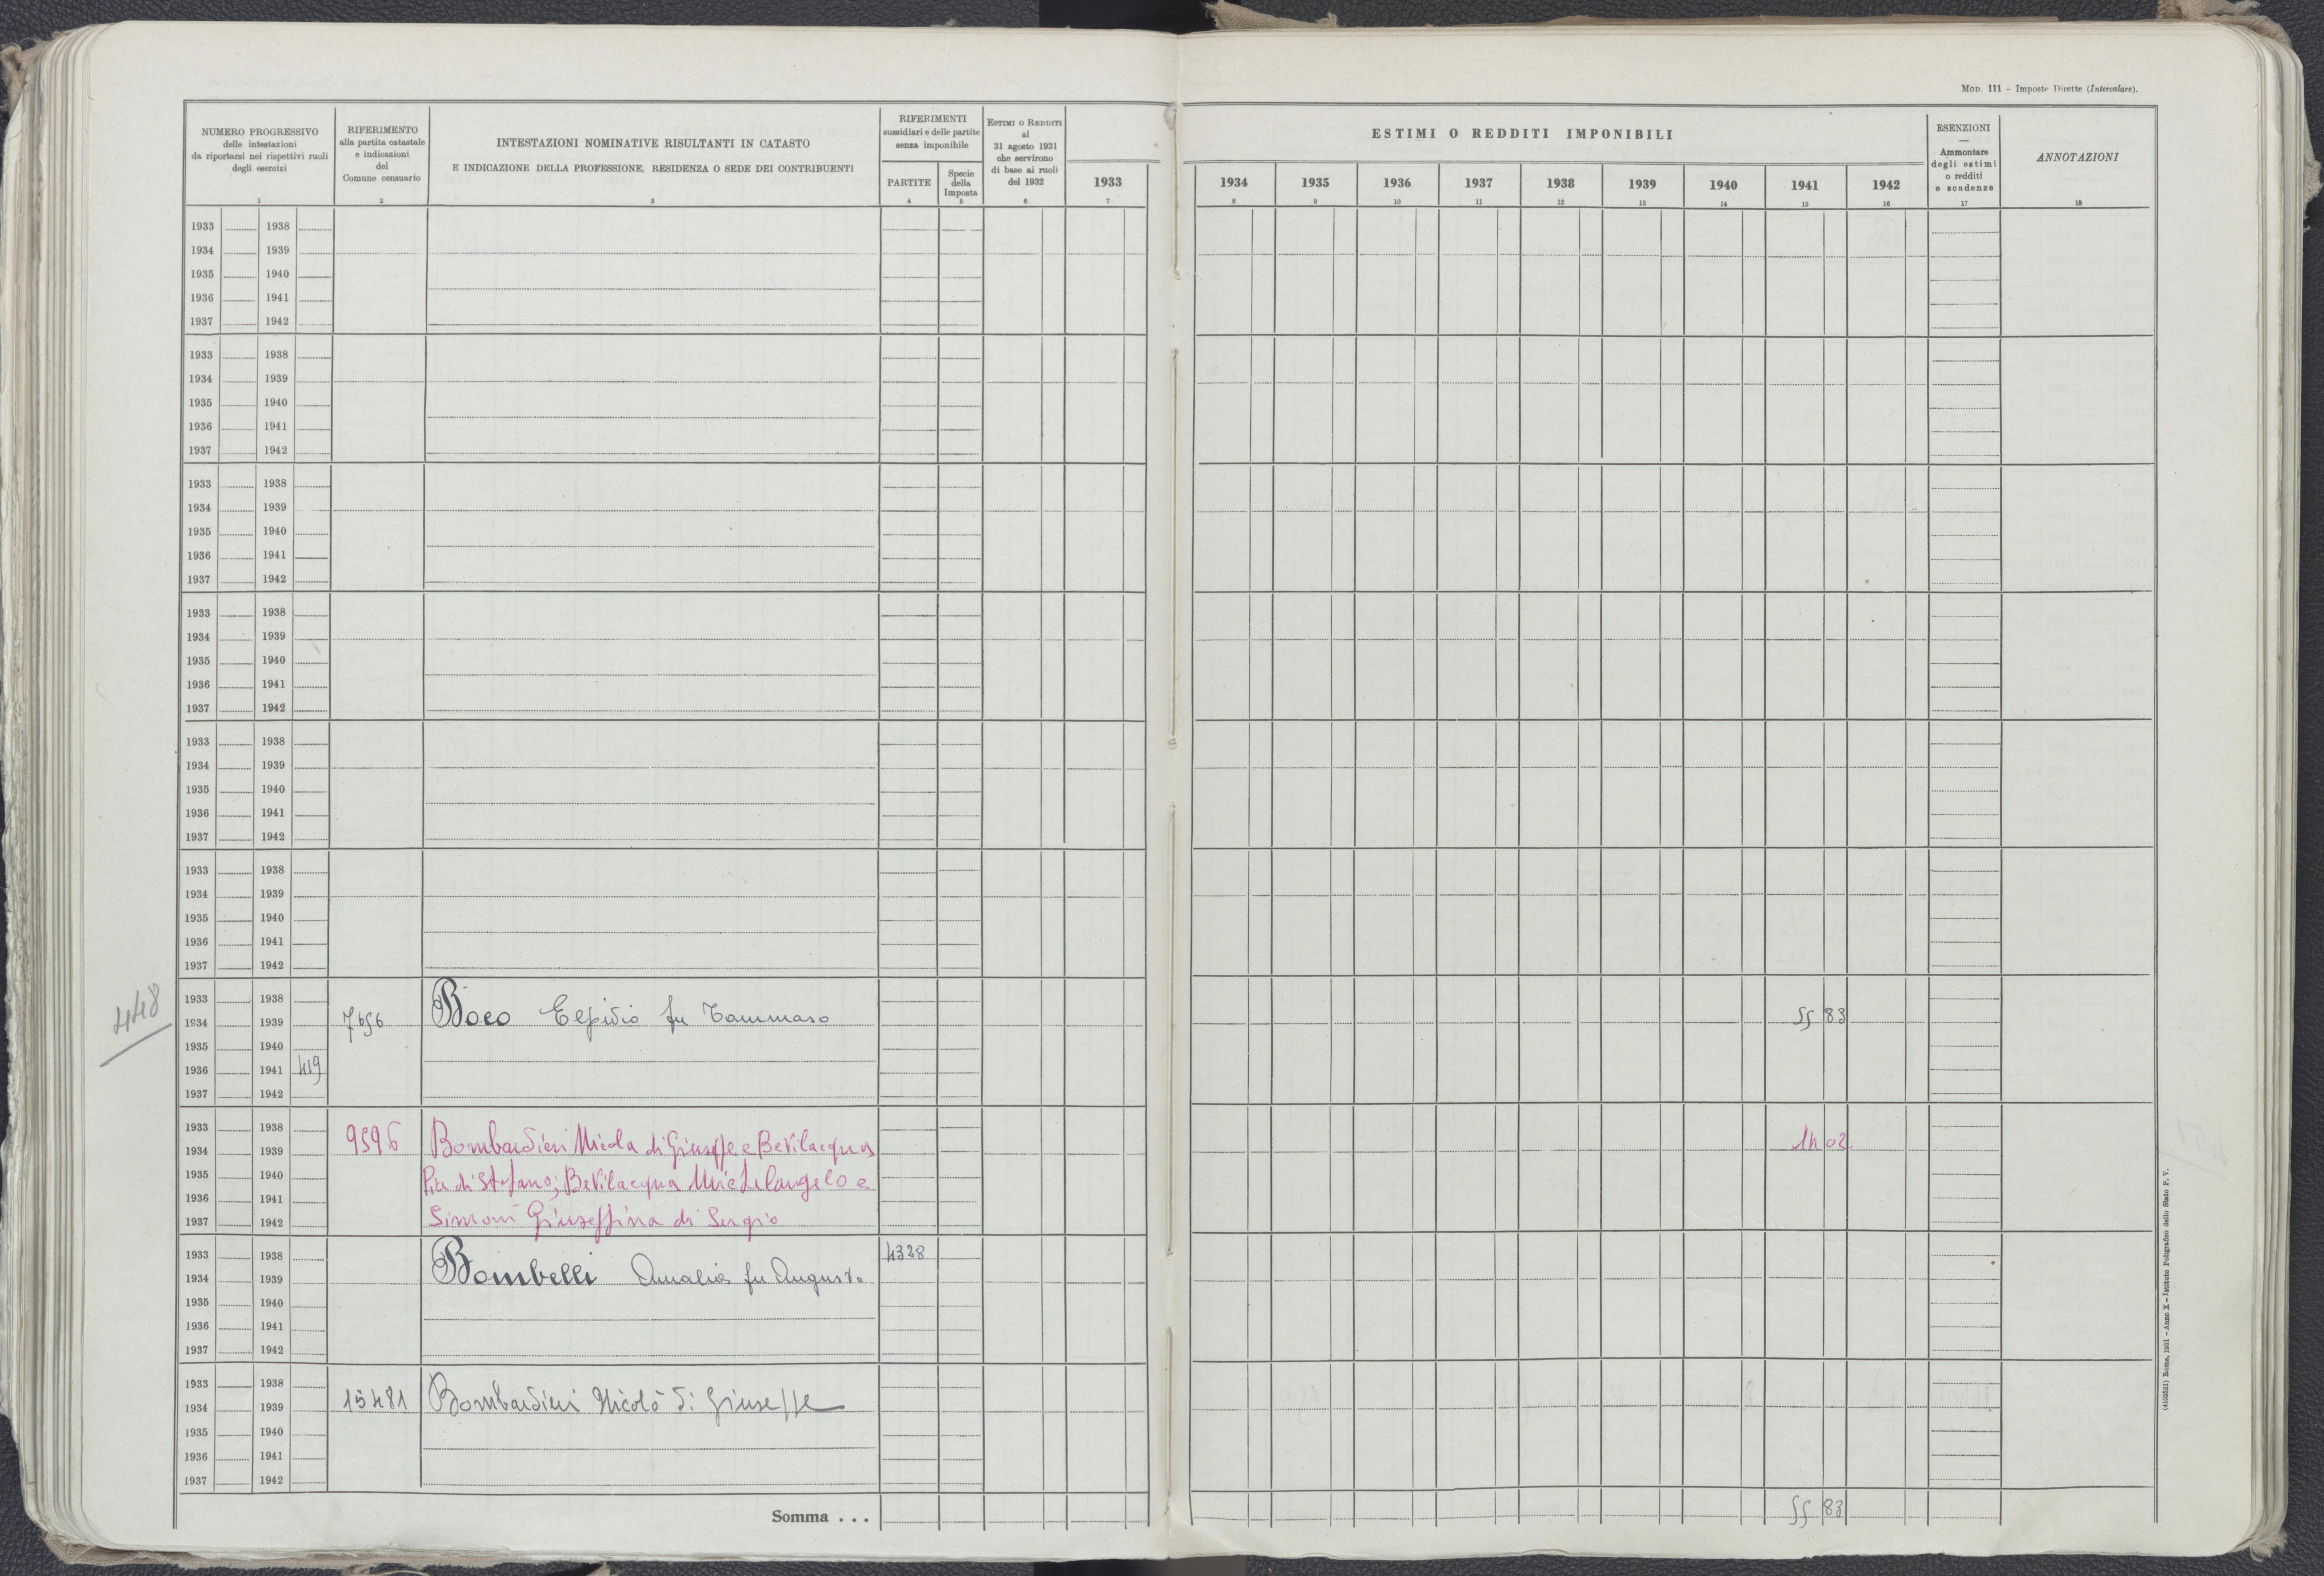 MOD. 111 - Imposte Dirette (Intercalare).
NUMERO PROGRESSIVO
delle intestazioni
da riportarsi nei rispettivi ruoli
degli esercizi
1
RIFERIMENTO
alla partita catastale
e indicazioni
del
Comune censuario
2
INTESTAZIONI NOMINATIVE RISULTANTI IN CATASTO
E INDICAZIONE DELLA PROFESSIONE, RESIDENZA O SEDE DEI CONTRIBUENTI
3
RIFERIMENTI
sussidiari e delle partite
senza imponibile
PARTITE
4
Specie
della
Imposta
5
ESTIMI O REDDITI
al
31 agosto 1931
che servirono
di base ai ruoli
del 1932
6
ESTIMI O REDDITI IMPONIBILI
1933 1934 1935 1936 1937 1938 1939 1940 1941 1942
7 8 9 10 11 12 13 14 15 16
ESENZIONI
Ammontare
degli estimi
o redditi
e scadenze
17
ANNOTAZIONI
18
1933 1938
1934 1939
1935 1940
1936 1941
1937 1942
1933 1938
1934 1939
1935 1940
1936 1941
1937 1942
1933 1938
1934 1939
1935 1940
1936 1941
1937 1942
1933 1938
1934 1939
1935 1940
1936 1941
1937 1942
1933 1938
1934 1939
1935 1940
1936 1941
1937 1942
1933 1938
1934 1939
1935 1940
1936 1941
1937 1942
448
1933 1938
1934 1939 7656 Boco Elpidio fu Tommaso 55 83
1935 1940
1936 1941 419
1937 1942
1933 1938
1934 1939 9596 Bombardieri Nicola di Giuseppe e Bevilacqua 14 02
1935 1940 Pia di Stefano; Bevilacqua Michelangelo e
1936 1941
1937 1942 Simoni Giuseppina di Sergio
1933 1938 4328
1934 1939 Bombelli Amalia fu Augusto
1935 1940
1936 1941
1937 1942
1933 1938
1934 1939 15481 Bombardieri Nicolò di Giuseppe
1935 1940
1936 1941
1937 1942
Somma . . . 55 83
(4160551) Roma, 1931 - Anno X - Istituto Poligrafico dello Stato P. V.